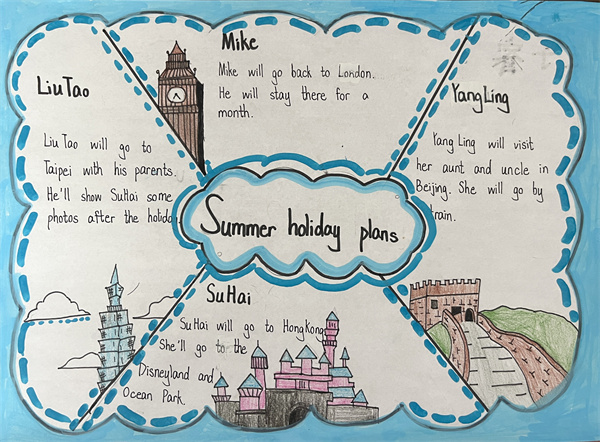 Mike
Mike will go back to London.
He will stay there for a
month.
Liu Tao
Liu Tao will go to
Taipei with his parents.
He'll show SuHai some
photos after the holiday
YangLing
Yang Ling will visit
her aunt and uncle in
Beijing. She will go by
train.
Summer holiday plans
SuHai
SuHai will go to HongKong.
She'll go to the
Disneyland and
Ocean Park.